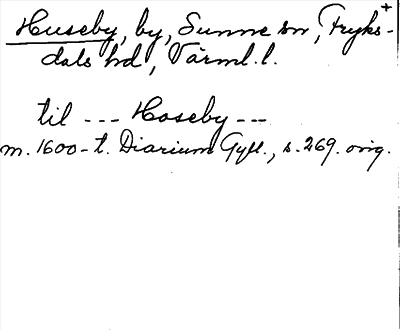 Huseby, by, Sunne sn, Fryks-
dals hd, Värml. l.
til --- Hoseby ---
m. 1600-t. Diarium Gyll., s. 269. orig.